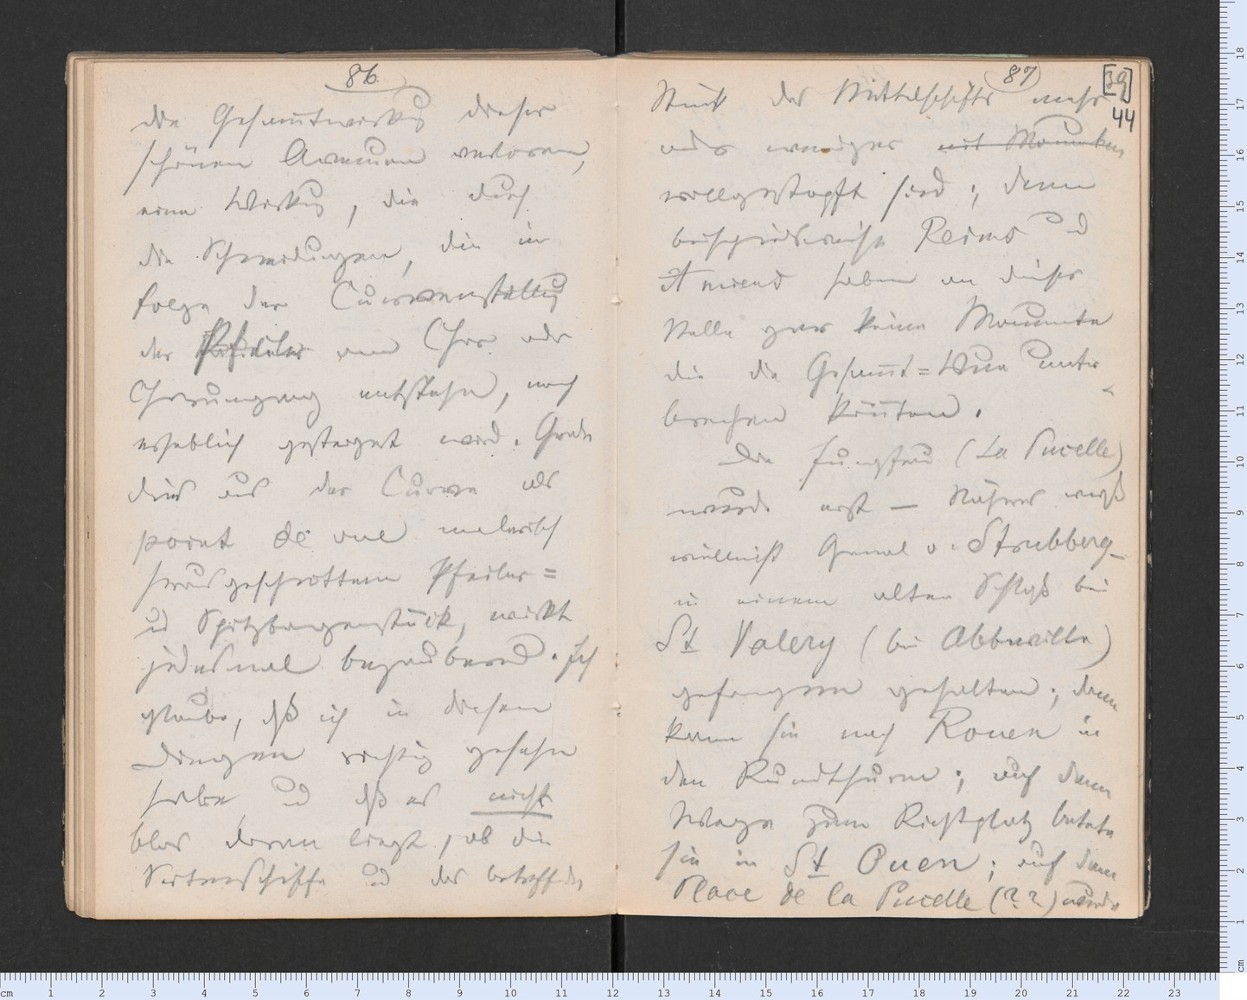 86
die Gesammtwirkung dieser
schönen Avenuen verloren,
eine Wirkung, die durch
die Schneidungen, die in
folge der Curvenstellung
der Pfeiler am Chor oder
Chorumgang entstehn, noch
erheblich gesteigert wird. Grade
dies aus der Curve als
point de vue malerisch
herausgeschnittene Pfeiler=
und Spitzbogenstück, wirkt
jedesmal bezaubernd. Ich
glaube, daß ich in diesen
Dingen richtig gesehn
habe und daß es nicht
blos daran liegt, ob die
Seitenschiffe und das betreffende
87
[39]
44
Stück des Mittelschiffs mehr
oder weniger mit Monumenten
vollgestopft sind; denn
beispielsweise Reims und
Amiens haben an dieser
Stelle gar keine Monumente
die die Gesammt=Wirkung unter
brechen könnten.
Die Jungfrau (La Pucelle)
wurde erst — Näheres weiß
vielleicht General v. Strubberg —
in einem alten Schloß bei
St Valery (bei Abbeville)
gefangen gehalten; dann
kam sie nach Rouen in
den Rundthurm; auf dem
Wege zum Richtplatz betete
sie in St Ouen; auf dem
Place de la Pucelle (??) wurde